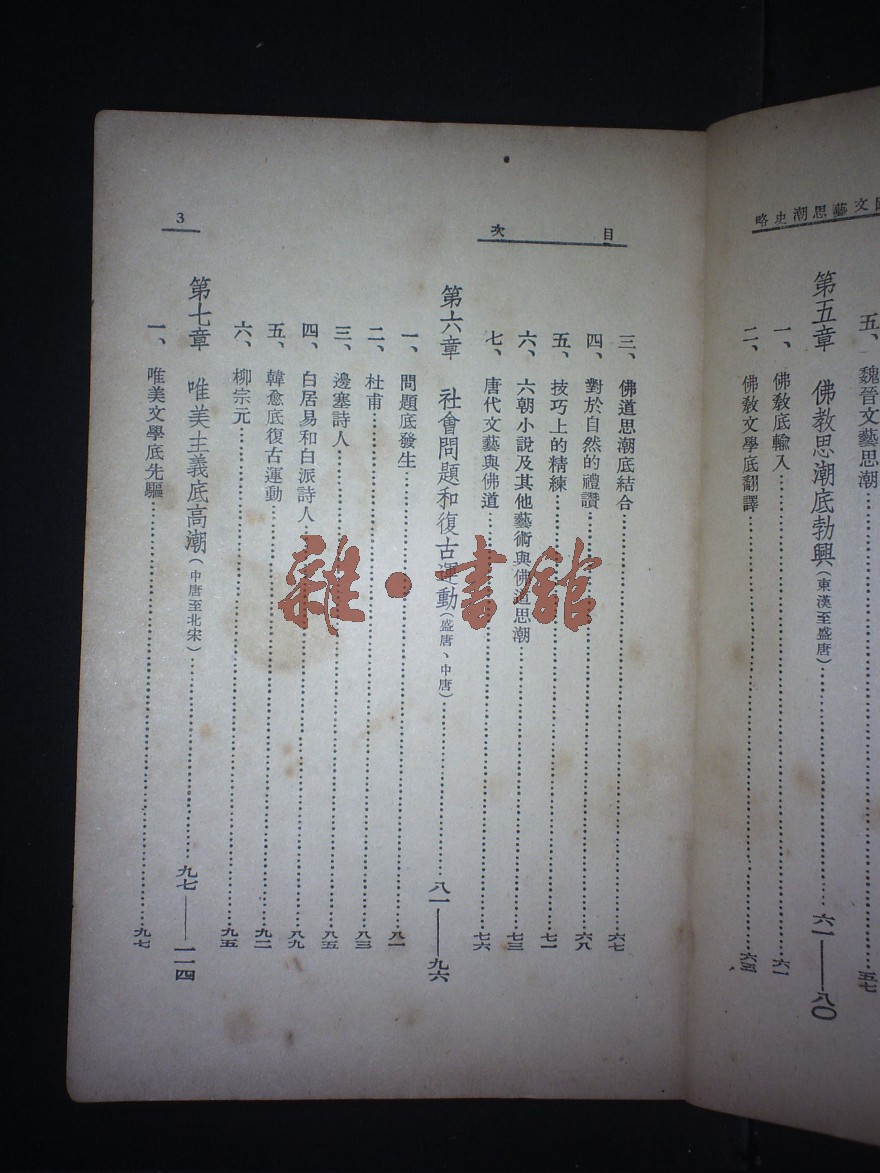 文藝思潮史略
五、魏晉文藝思潮……五七
第五章 佛教思潮底勃興(東漢至盛唐)……六一——八〇
一、佛教底輸入……六一
二、佛教文學底翻譯……六三
目次
三、佛道思潮底結合……六七
四、對於自然的禮讚……六八
五、技巧上的精練……七一
六、六朝小說及其他藝術與佛道思潮……七三
七、唐代文藝與佛道……七六
第六章 社會問題和復古運動(盛唐、中唐)……八一——九六
一、問題底發生……八一
二、杜甫……八三
三、邊塞詩人……八五
四、白居易和白派詩人……八九
五、韓愈底復古運動……九二
六、柳宗元……九五
第七章 唯美主義底高潮(中唐至北宋)……九七——一一四
一、唯美文學底先驅……九七
3
雜·書館